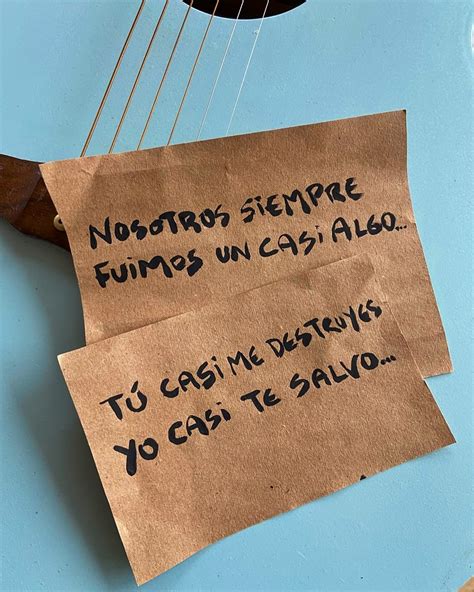 NOSOTROS SIEMPRE
FUIMOS UN CASI ALGO...
TÚ CASI ME DESTRUYES
YO CASI TE SALVO...